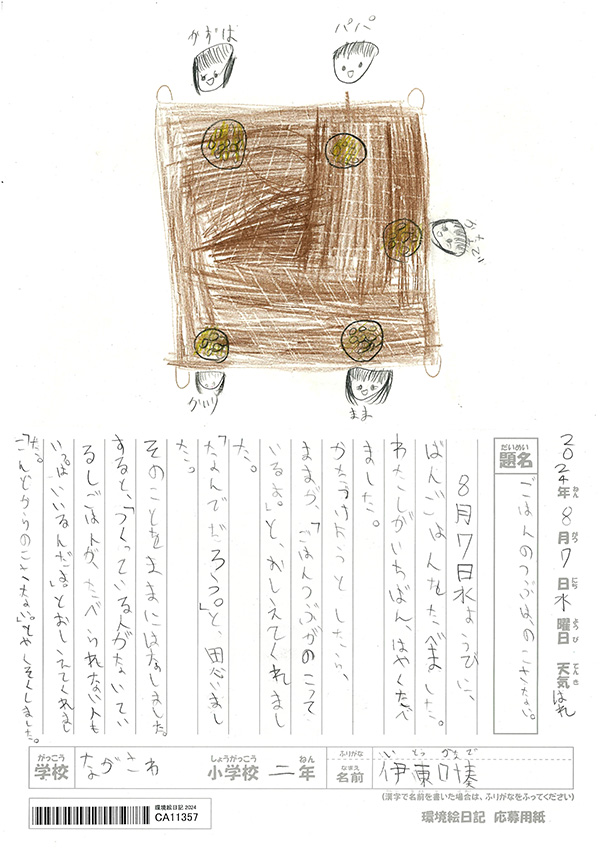 かずは
パパ
かなで
かいり
まま
2024年ねん 8月がつ 7日にち 水曜日ようび 天気てんき はれ
題名だいめい ごはんのつぶは、のこさない。
8月7日水ようびに、
ばんごはんをたべました。
わたしがいちばん、はやくたべ
ました。
かたづけようとしたら、
ままが、「ごはんつぶがのこって
いるよ。」と、おしえてくれまし
た。
「なんでだろう。」と、思いまし
た。
そのことをままにはなしました。
すると、「つくっている人がないてい
るしごはんが、たべられない人も
いっぱいいるんだよ。」とおしえてくれまし
た。
「こんどからのこさない。」とやくそくしました。
学校がっこう ながさわ 小学校しょうがっこう 二年ねん
ふりがな いとう かなで
名前なまえ 伊東 奏
(漢字で名前を書いた場合は、ふりがなをふってください)
環境絵日記 2024
CA11357
環境絵日記 応募用紙